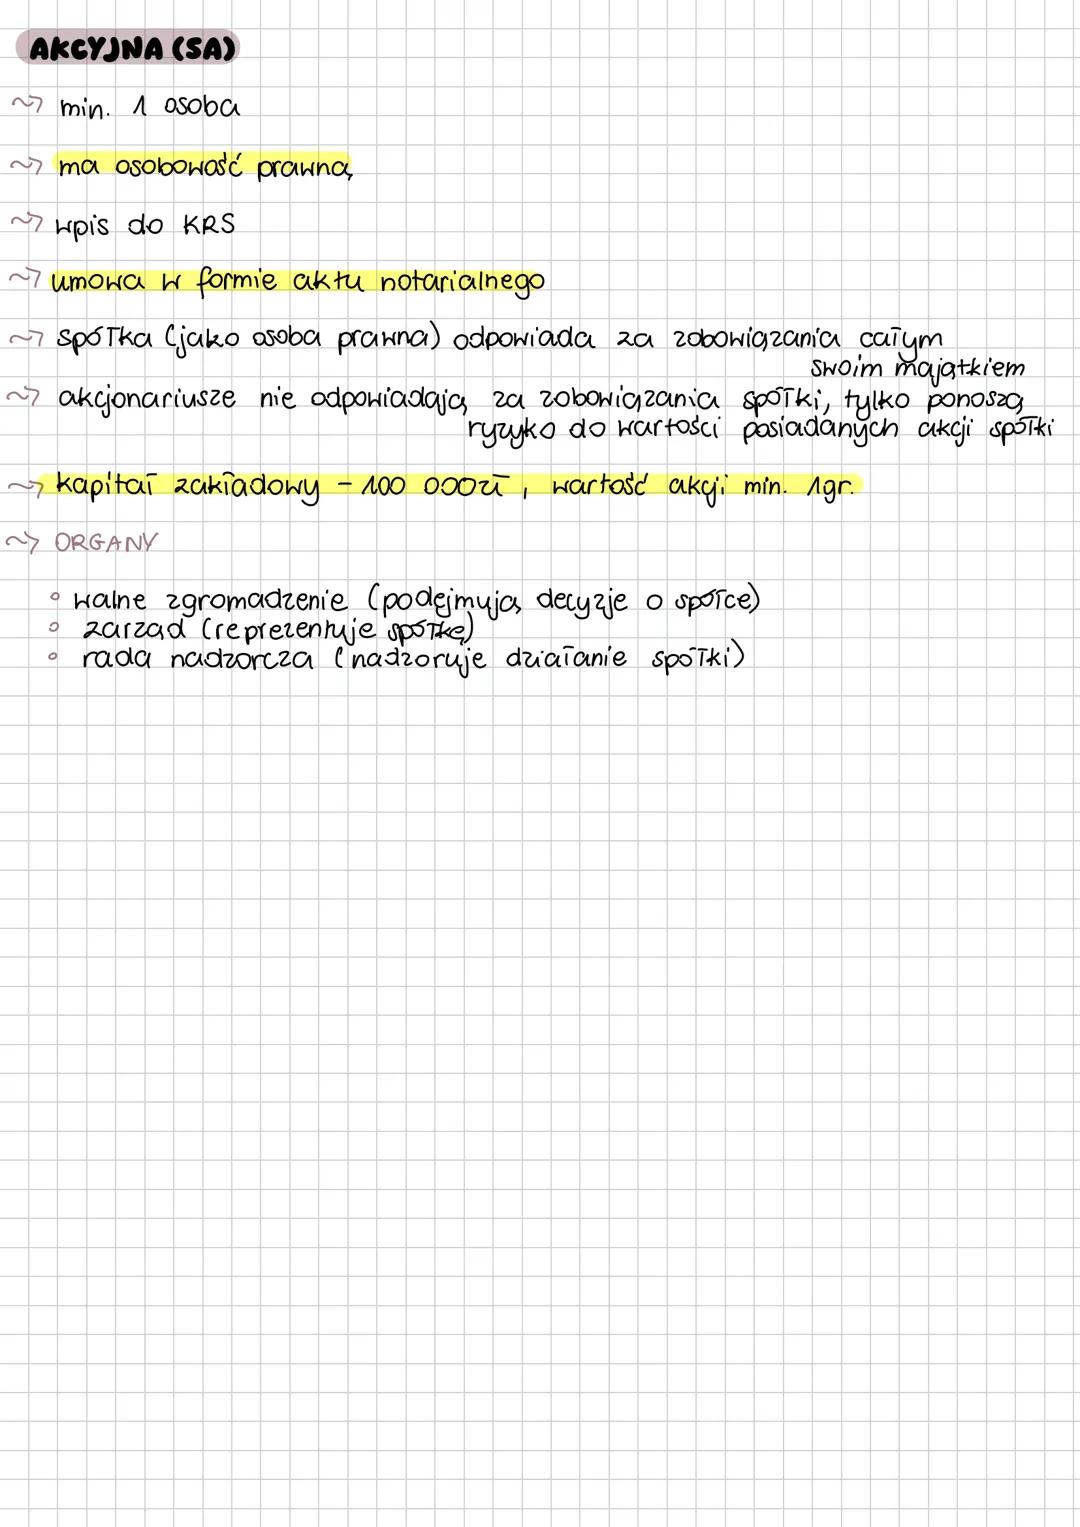 AKCYJNA (SA)
~> min. 1 osoba
~> ma osobowość prawną
~> wpis do KRS
~> umowa w formie aktu notarialnego
~> spółka (jako osoba prawna) odpowiada za zobowiązania całym
swoim majątkiem
~> akcjonariusze nie odpowiadają za zobowiązania spółki, tylko ponoszą
ryzyko do wartości posiadanych akcji spółki
~> kapitał zakładowy - 100 000zł, wartość akcji min. 1gr.
~> ORGANY
◦ walne zgromadzenie (podejmują decyzje o spółce)
◦ zarzad (reprezentuje spółkę)
◦ rada nadzorcza (nadzoruje działanie spółki)